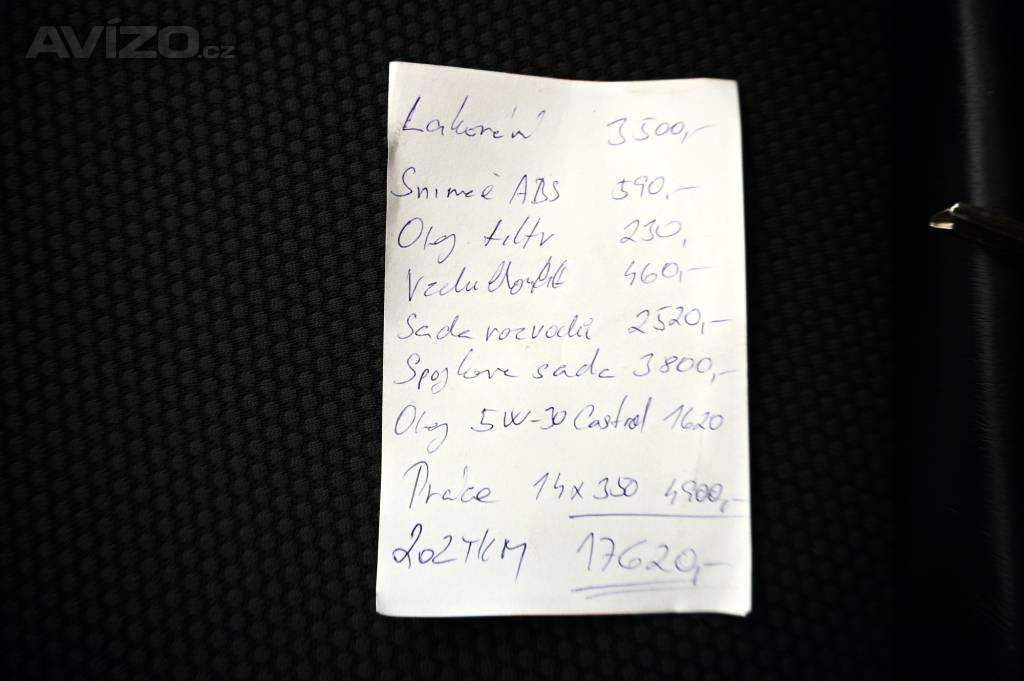 AVÍZO.cz
Lakování 3500,-
Snímč ABS 590,-
Olej. filtr 230,-
Vzduchový 460,-
Sada rozvodů 2520,-
Spojkova sada 3800,-
Olej 5W-30 Castrol 1620
Práce 14x350 4900,-
202TKM 17620,-